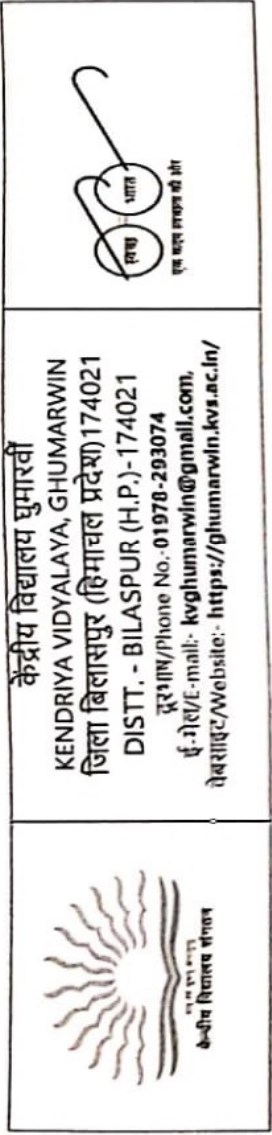 केन्द्रीय विद्यालय संगठन
केंद्रीय विद्यालय घुमारवीं
KENDRIYA VIDYALAYA, GHUMARWIN
जिला बिलासपुर (हिमाचल प्रदेश)174021
DISTT. - BILASPUR (H.P.)-174021
दूरभाष/Phone No.-01978-293074
ई-मेल/E-mail:- kvghumarwin@gmail.com,
वेबसाइट/Website:- https://ghumarwin.kvs.ac.in/
स्वच्छ भारत
एक कदम स्वच्छता की ओर